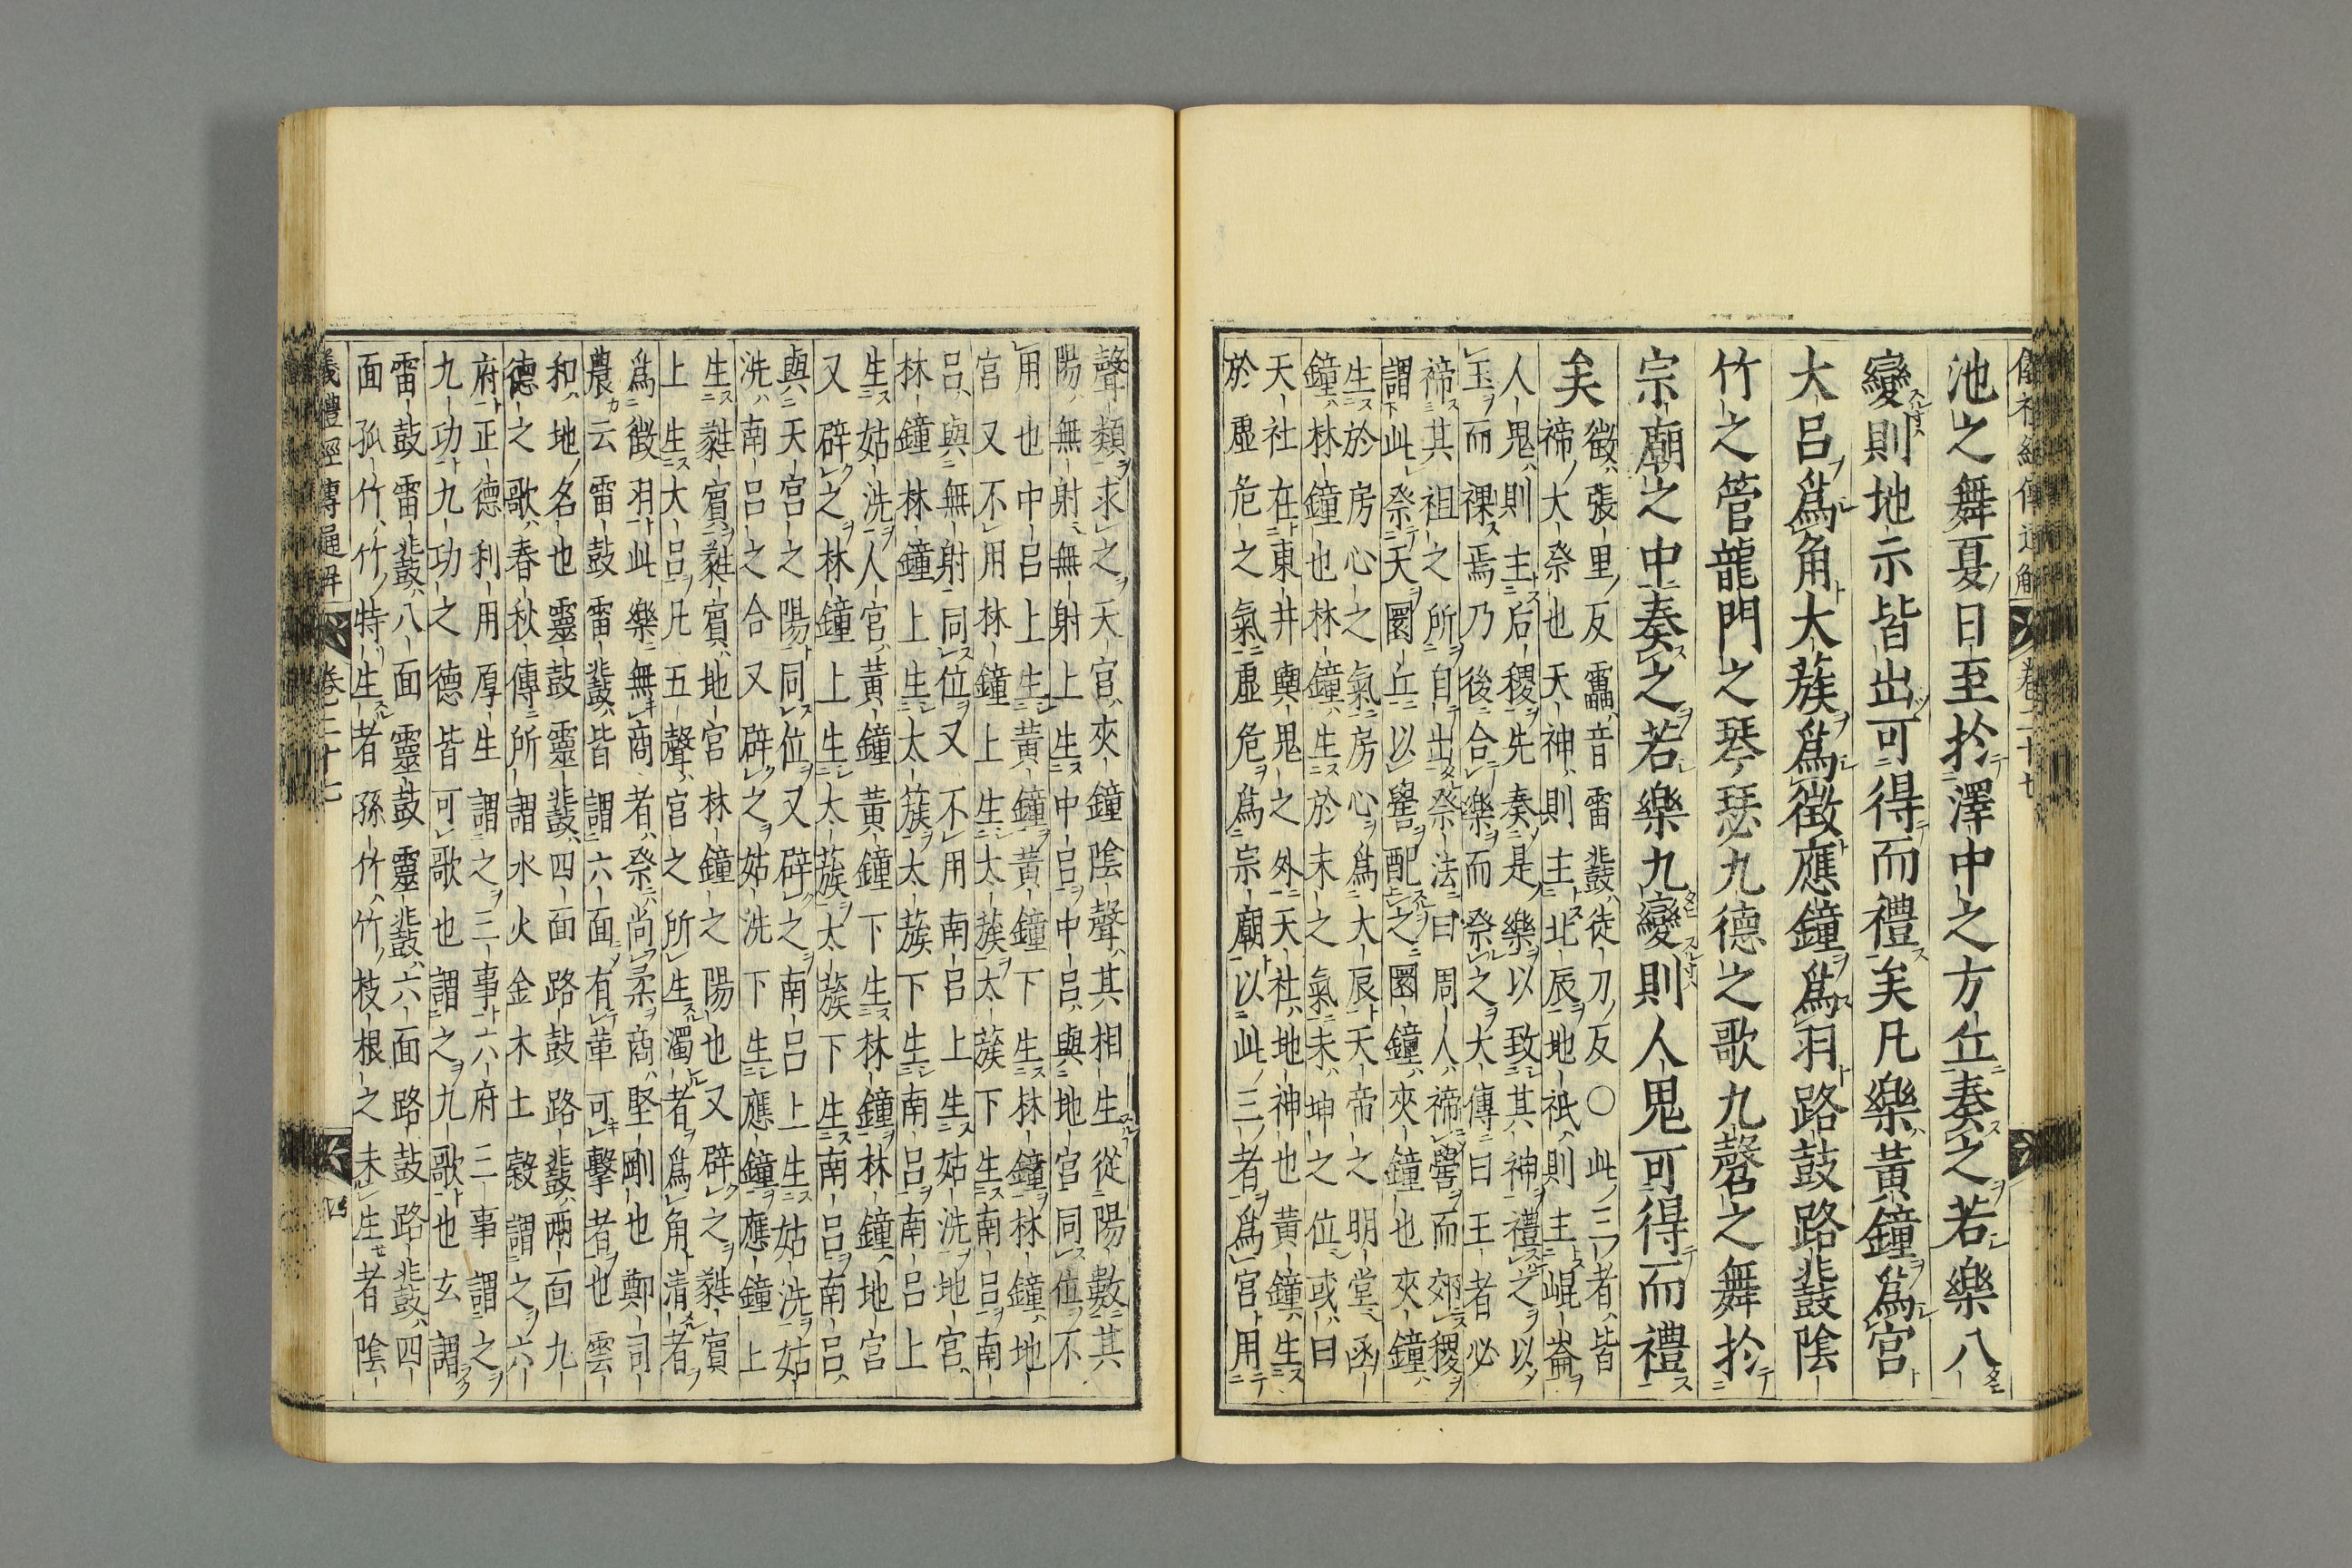 池之舞夏日至於澤中之方丘奏之若樂八
變則地示皆出可得而禮矣凡樂黃鐘爲宮
大呂爲角大蔟爲徵應鐘爲羽路鼓路鼗陰
竹之管龍門之琴瑟九德之歌九磬之舞於
宗廟之中奏之若樂九變則人鬼可得而禮
矣
徵張里反靁音雷鼗徒刀反○此三者皆
禘大祭也天神則主北辰地祇則主崐崙
人鬼則主后稷先奏是樂以致其神禮之以
玉而祼焉乃後合樂而祭之大傳曰王者必
禘其祖之所自出祭法曰周人禘嚳而郊稷
謂此祭天圜丘以嚳配之圜鐘夾鐘也夾鐘
生於房心之氣房心爲大辰天帝之明堂函
鐘林鐘也林鐘生於未之氣未坤之位或曰
天社在東井輿鬼之外天社地神也黃鐘生
於虛危之氣虛危爲宗廟以此三者爲宮用
聲類求之天宮夾鐘陰聲其相生從陽數其
陽無射無射上生中呂中呂與地宮同位不
用也中呂上生黃鐘黃鐘下生林鐘林鐘地
宮又不用林鐘上生太蔟太蔟下生南呂南
呂與無射同位又不用南呂上生姑洗地宮
林鐘林鐘上生太簇太蔟下生南呂南呂上
生姑洗人宮黃鐘黃鐘下生林鐘林鐘地宮
又辟之林鐘上生太蔟太蔟下生南呂南呂
與天宮之陽同位又辟之南呂上生姑洗姑
洗南呂之合又辟之姑洗下生應鐘應鐘上
生蕤賓蕤賓地宮林鐘之陽也又辟之蕤賓
上生大呂凡五聲宮之所生濁者爲角清者
爲徵羽此樂無商者祭尚柔商堅剛也鄭司
農云雷鼓雷鼗皆謂六面有革可擊者也雲
和地名也靈鼓靈鼗四面路鼓路鼗兩面九
德之歌春秋傳所謂水火金木土穀謂之六
府正德利用厚生謂之三事六府三事謂之
九功九功之德皆可歌也謂之九歌也玄謂
雷鼓雷鼗八面靈鼓靈鼗六面路鼓路鼗四
面孤竹竹特生者孫竹竹枝根之未生者陰
儀禮經傳通解
卷二十七